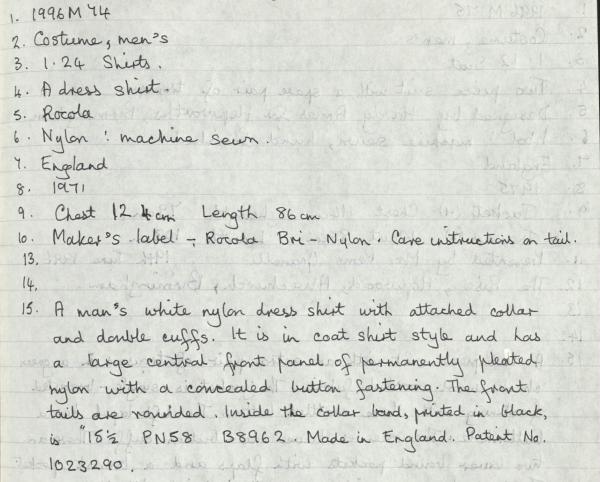 1. 1996 M 74
2. Costume, men's
3. 1.24 Shirts.
4. A dress shirt.
5. Rocola
6. Nylon : machine sewn.
7. England
8. 1971
9. Chest 124cm Length 86cm
10. Maker's label - Rocola Bri-Nylon. Care instructions on tail.
13.
14.
15. A man's white nylon dress shirt with attached collar
and double cuffs. It is in coat shirt style and has
a large central front panel of permanently pleated
nylon with a concealed button fastening. The front
tails are rounded. Inside the collar band, printed in black,
is "15½ PN58 B8962 Made in England. Patent No.
1023290.